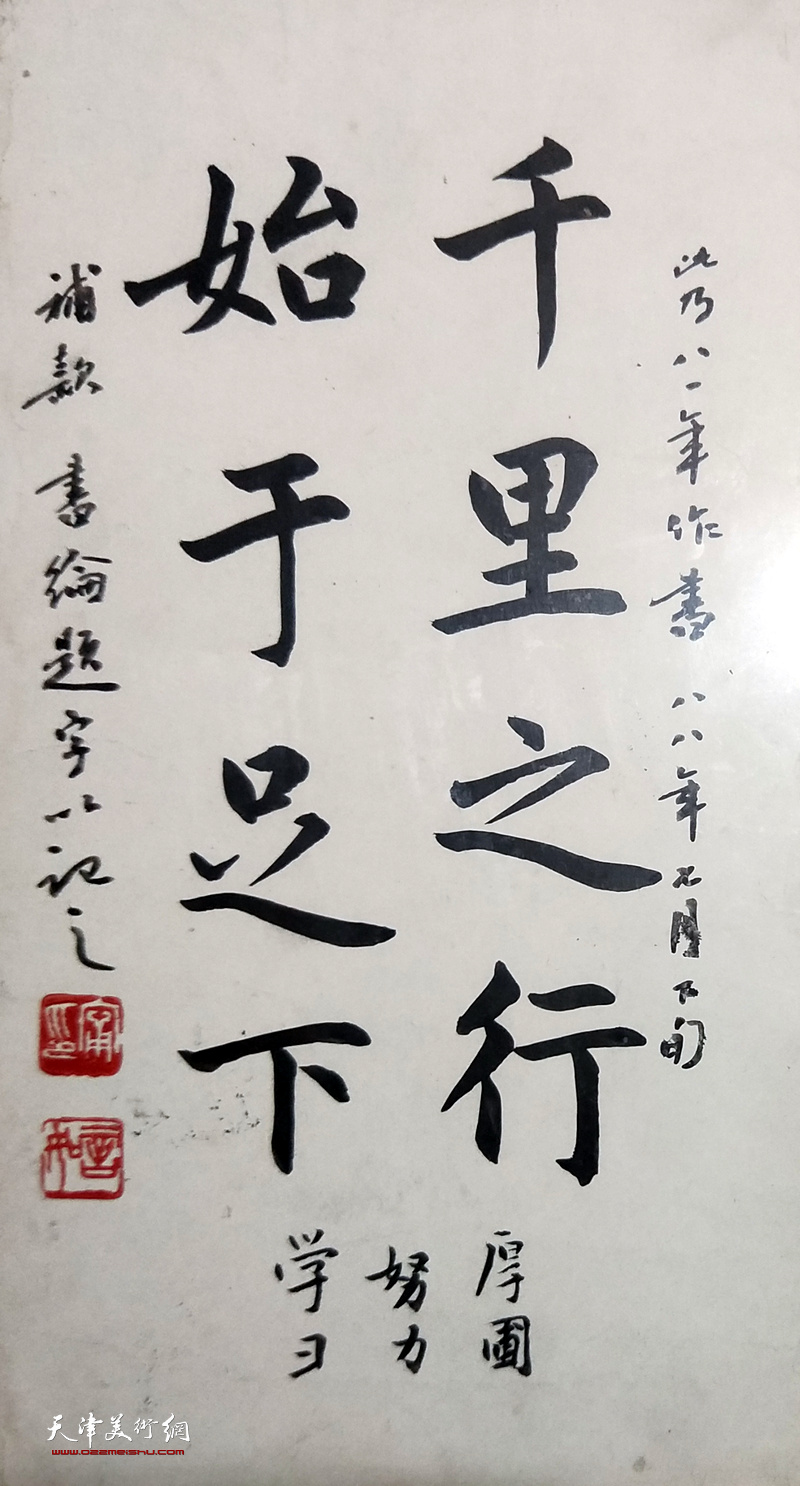 此乃八一年作书 八八年元月下旬
千里之行
始于足下
补款 书纶题字以记之
厚圃
努力
学习
天津美術網
www.022meishu.com